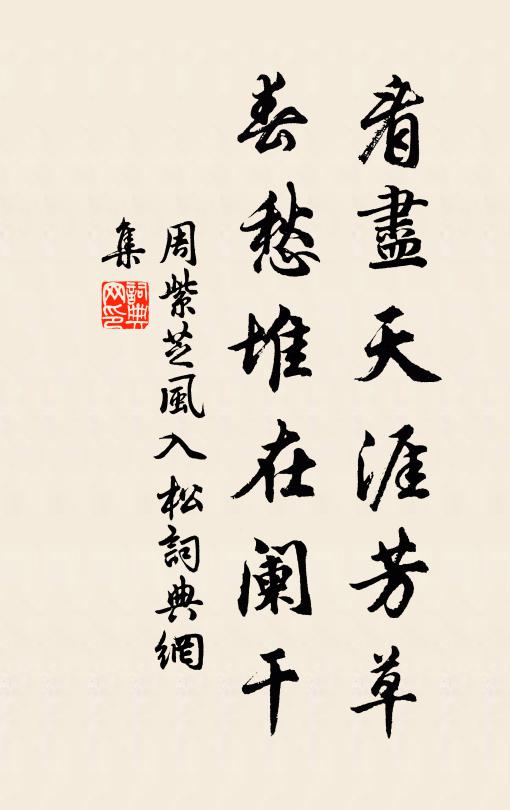 看盡天涯芳草
春愁堆在阑干
周紫芝風入松詞典網
集
詞典
网印